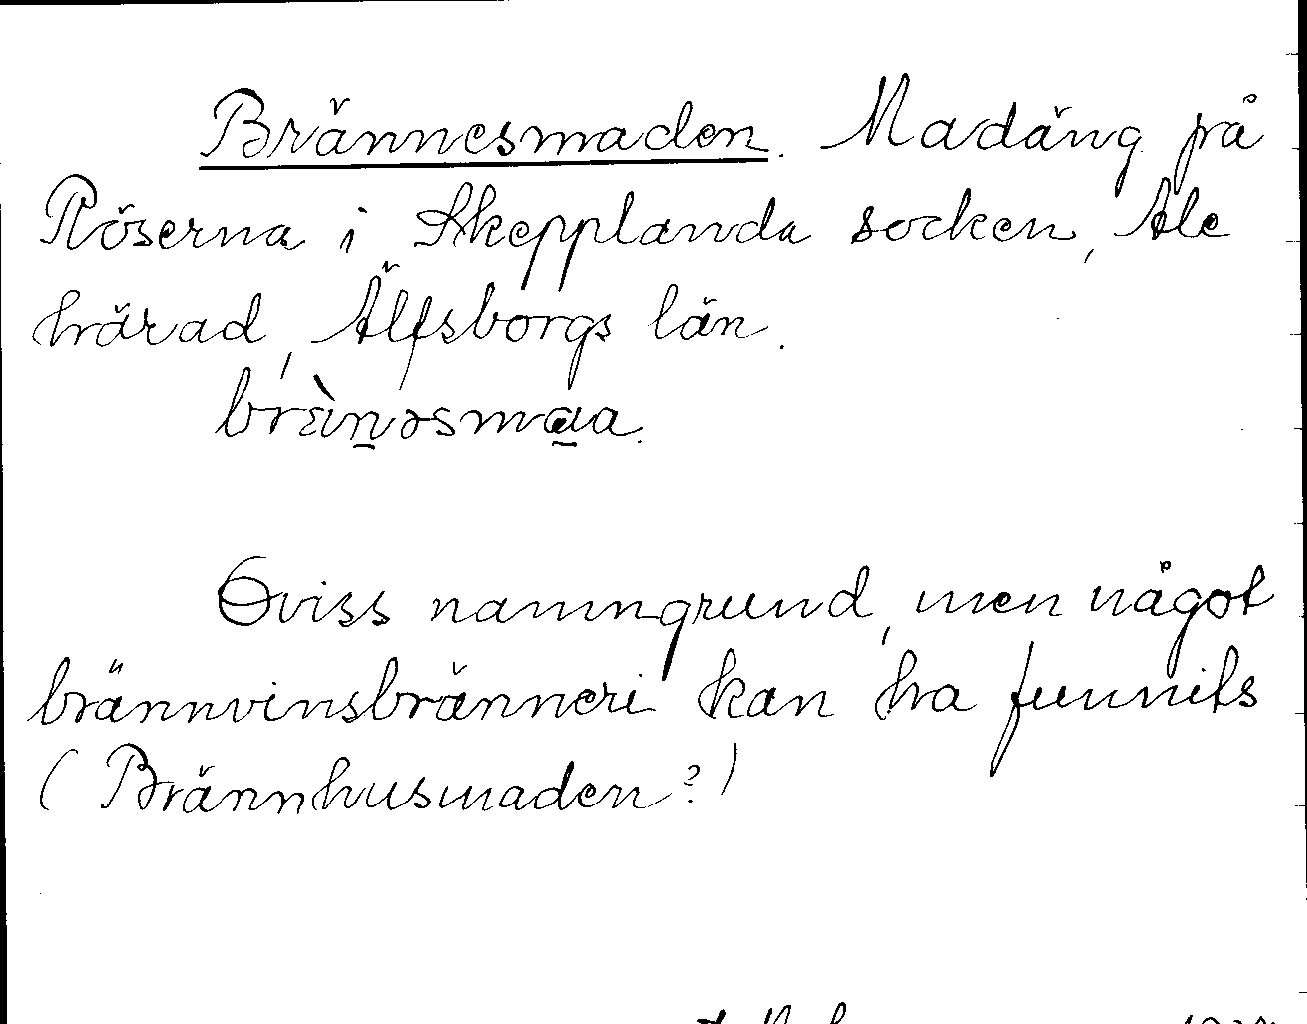 Brännesmaden. Madäng på
Röserna i Skepplanda socken, Ale
härad, Älfsborgs län.
brän̲əsma̲a.
Oviss namngrund, men något
brännvinsbränneri kan ha funnits
(Brännhusmaden?)